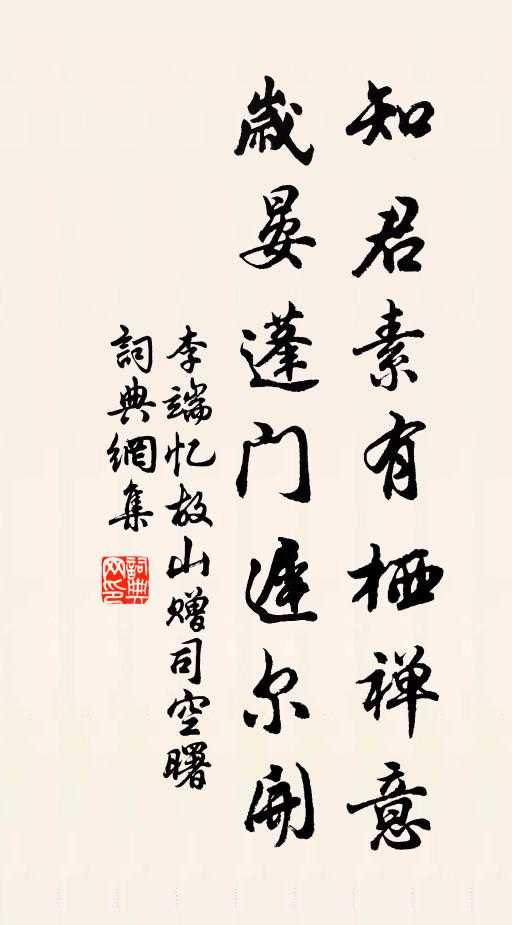 知君素有栖禅意
歳晏蓬门遲尔開
李端忆故山赠司空曙
詞典網集
詞典网印